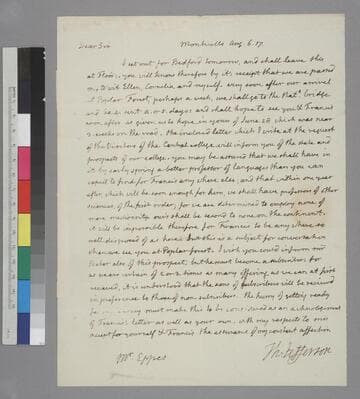 Dear Sir
Monticello Aug. 6. 17.
I set out for Bedford tomorrow, and shall leave this
at Flood's. you will know therefore by it's receipt that we are passed
on, to wit Ellen, Cornelia and myself. very soon after our arrival
at Poplar Forest, perhaps a week, we shall go to the Nat. bridge
and be absent 4. or 5. days and shall hope to see you & Francis
soon after as given us to hope in yours of June 28 which was near
weeks on the road. the inclosed letter which I write at the request
of the Visitors of the Central college will inform you of the state and
prospects of our college. you may be assured that we shall have in
it by early spring a better professor of languages than you can
expect to find for Francis any where else. and that within one year
after, which will be soon enough for him, we shall have professors of other
sciences, of the first order, for we are determined to employ none of
mere mediocrity. ours shall be second to none on the continent.
it will be impossible therefore for Francis to be any where so
well disposed of as here. but this is a subject for conversation
when we see you at Poplar forest. I wish you could inform
also of this prospect, but he must become a subscriber for
as many as offering as we can at first
received, it is understood that the sons of subscribers will be received
in preference to those of non subscribers. the hurry of getting ready
for my journey must make this to be considered as an acknolegement
of Francis's letter as well as your own. with my respects to mrs
accept for yourself & Francis the assurance of my constant affection
Th: Jefferson
Mr. Eppes